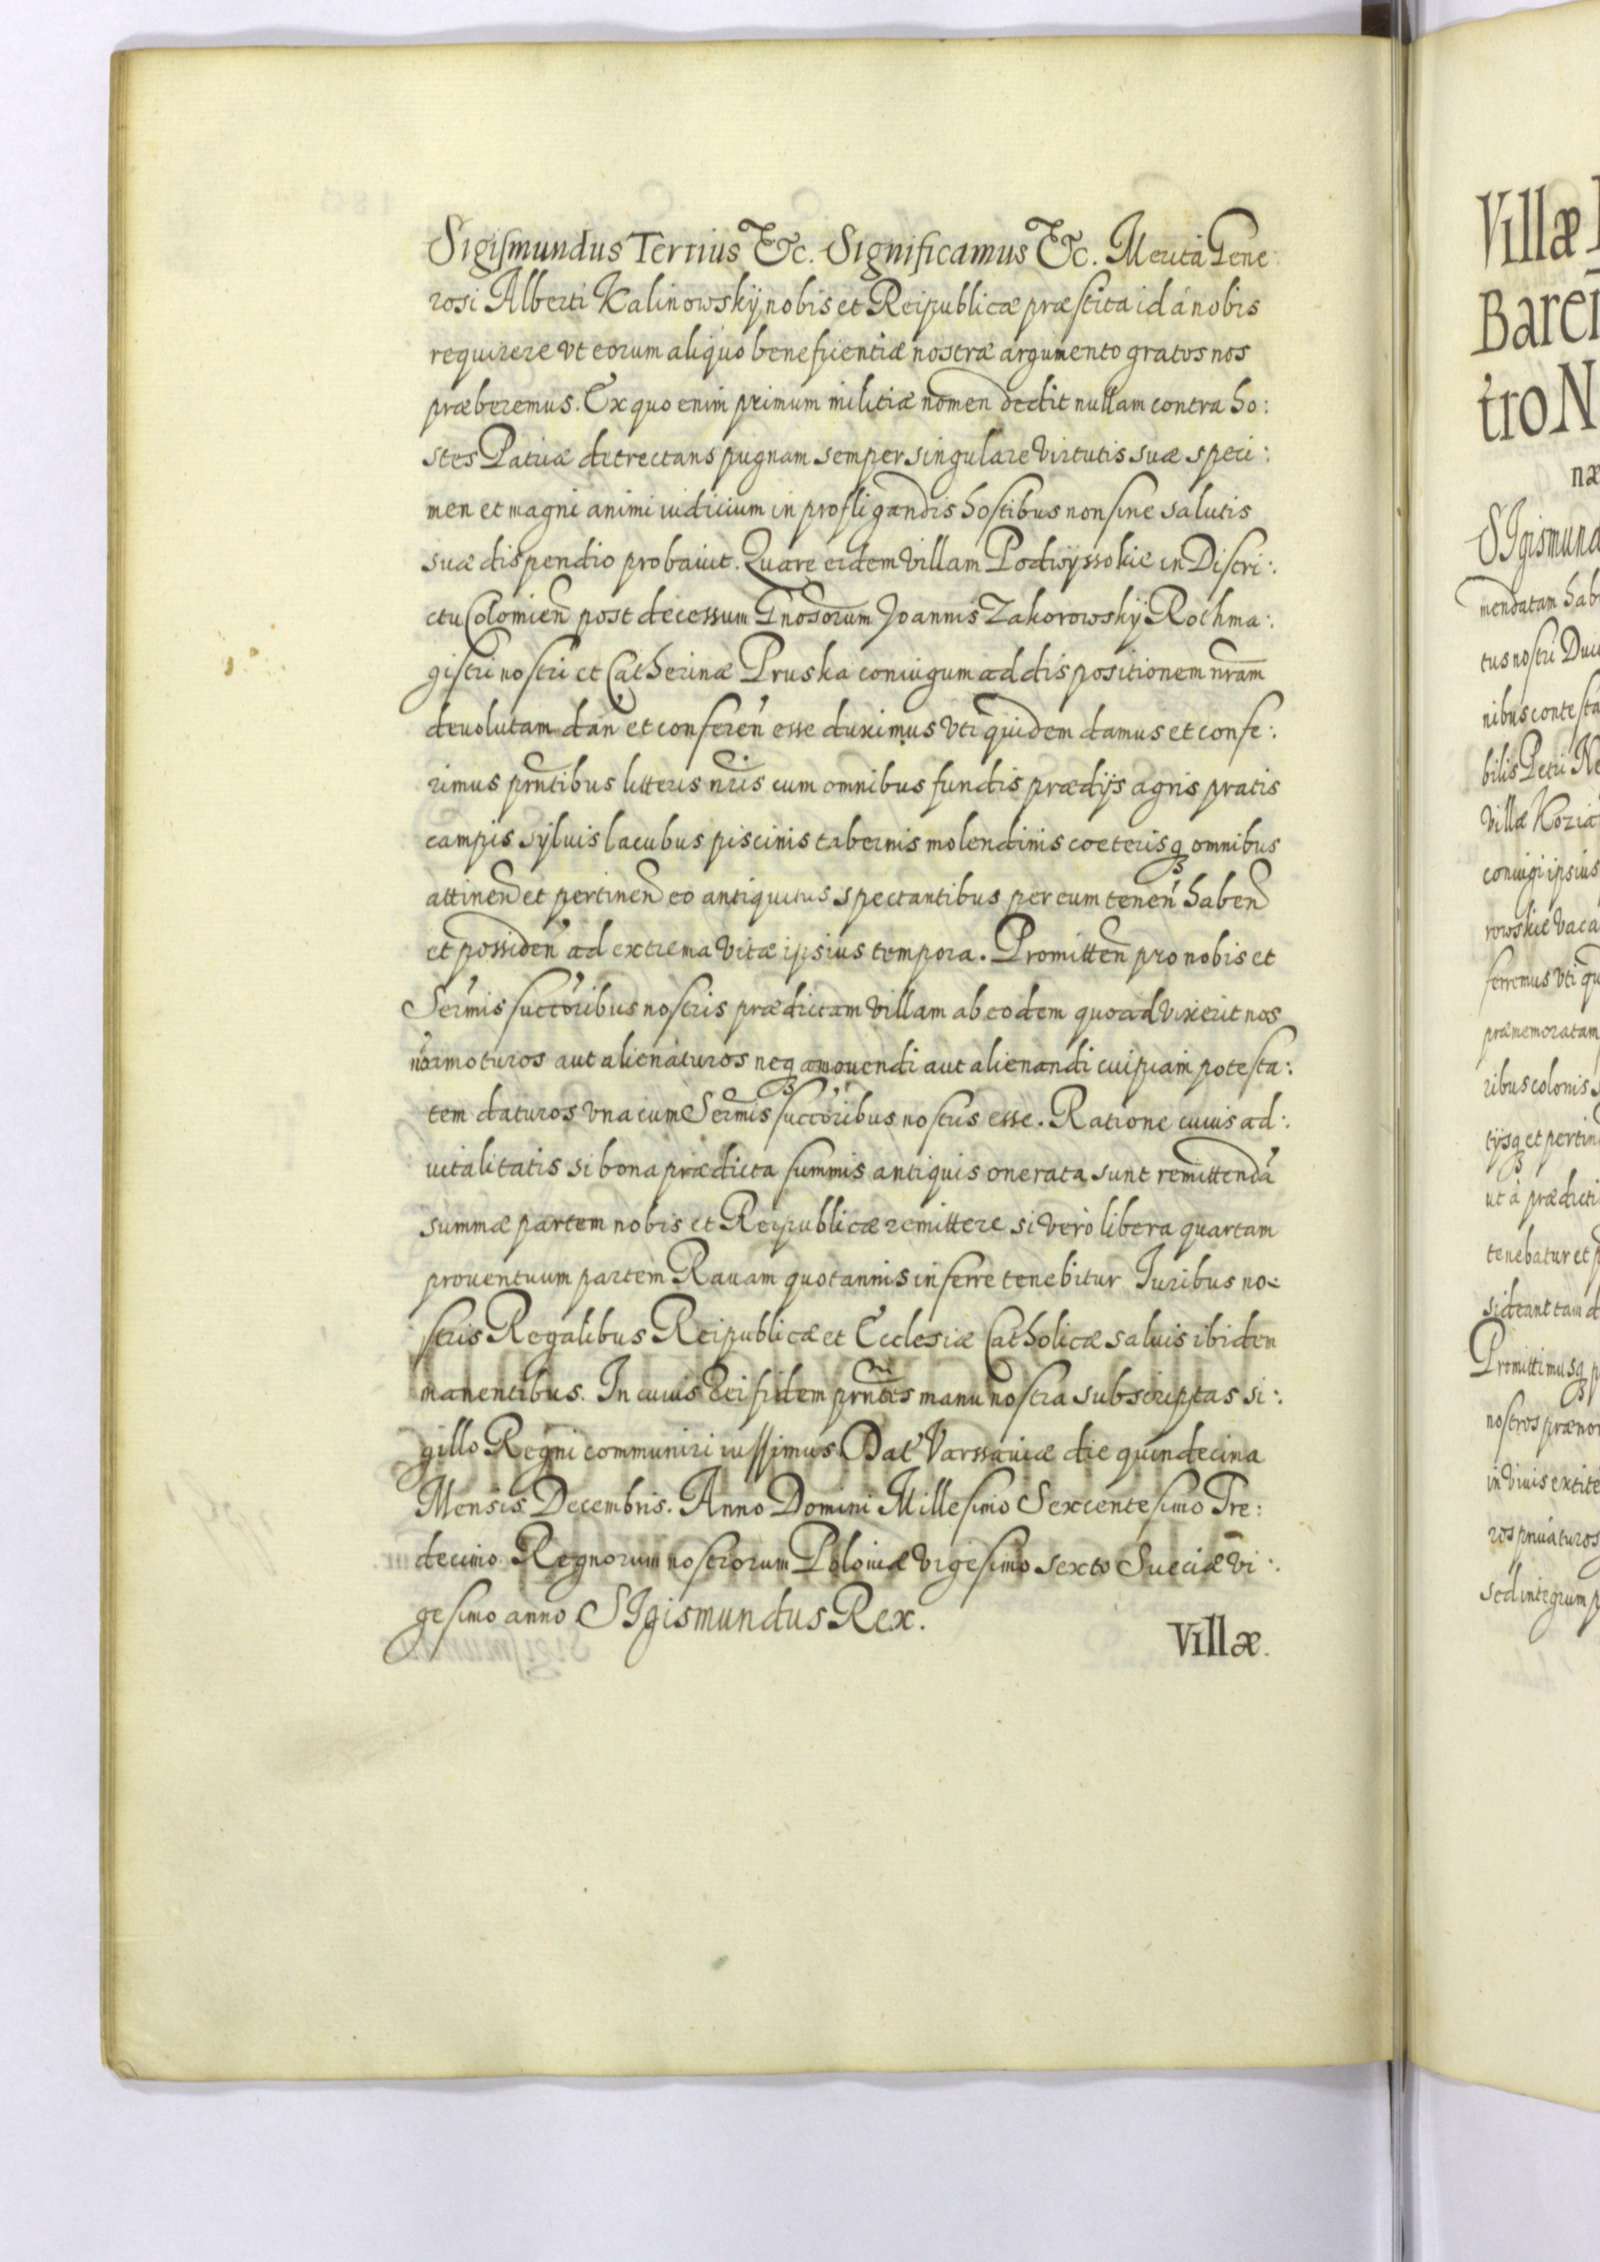 Sigismundus Tertius Etc. Significamus Etc. Merita Gene:
rosi Alberti Kalinowskÿ nobis et Reipublicæ præstita id á nobis
requirere vt eorum aliquo beneficientiæ nostræ argumento gratos nos
præberemus. Ex quo enim primum militiæ nomen dedit nullam contra ho:
stes Patriæ detrectans pugnam semper singulare virtutis suæ speci:
men et magni animi iudicium in profligandis hostibus non sine salutis
suæ dispendio probauit. Quare eidem villam Podwÿssokie in Distri:
ctu Colomieñ post decessum Gnosorum Joannis Zakorowskÿ Rothma:
gistri nostri et Catherinæ Pruska coniugum ad dispositionem nram
deuolutam dan̄ et conferen̄ esse duximus vti quidem damus et confe:
rimus prntibus litteris nris cum omnibus fundis prædÿs agris pratis
campis sÿluis lacubus piscinis tabernis molendinis coeterisq₃ omnibus
attinen̄ et pertinen̄ eo antiquitus spectantibus per eum tenen̄ haben̄
et possiden̄ ad extrema vitæ ipsius tempora. Promitten̄ pro nobis et
Sermis succoribus nostris prædictam villam ab eodem quoad vixerit nos
non amoturos aut alienaturos neq₃ amouendi aut alienandi cuipiam potesta:
tem daturos vna cum Sermis succoribus nostris esse. Ratione cuius ad:
uitalitatis si bona prædicta summis antiquis onerata sunt remittenda
summæ partem nobis et Reipublicæ remittere si verò libera quartam
prouentuum partem Rauam quotannis inferre tenebitur Iuribus no:
stris Regalibus Reipublicæ et Ecclesiæ Catholicæ saluis ibidem
manentibus. In cuius rei fidem prntes manu nostra subscriptas si:
gillo Regni communiri iussimus Dat' Varssauiæ die quindecima
Mensis Decembris. Anno Domini Millesimo Sexcentesimo Tre:
decimo Regnorum nostrorum Poloniæ vigesimo sexto Sueciæ vi:
gesimo anno SIgismundus Rex.
Villæ.
Villæ
tro N
næ
SIgismund
mendatam hab
tus nostri
nibus contesta
bilis Petri Ne
villæ Kozia
coniugi ipsius
rowskie vaca
ferremus vti qu
prænemoratam
ribus colonis
tÿsq₃ et pertin
ut à prædicti
tenebatur et
sideant tam d
Promittimusq₃
nostros præno
in viuis extite
ros
sed integrum